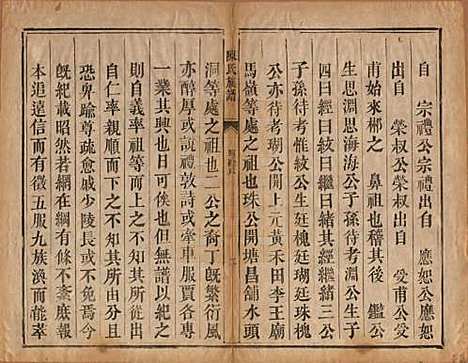 自　宗禮公宗禮出自　應恕公應恕
出自　榮叔公榮叔出自　受甫公受
甫始來郴之　鼻祖也稽其後　鑑公
生思淵思海海公子孫待考淵公生子
四曰紀曰經曰繼曰緒其經繼三公
子孫待考惟紋公生廷槐廷瑚廷珠槐
公亦待考瑚公開上元黃禾田李王廟
馬嶺等處之祖也珠公開塘昌舖水頭
陳氏族譜
洞等處之祖也二公之裔丁旣繁衍風
亦醇厚或讀禮敦詩或牽車服賈各專
一業其興也可俟也但無譜以紀之
則自義率祖等而上之不知其所從來
自仁率親順而下之不知其所由分
恐卑踰尊疏愈戚少陵長或不免焉今
旣紀載昭然若綱在綱有條不紊庶報
本追遠信而有徵五服九族渙而能萃